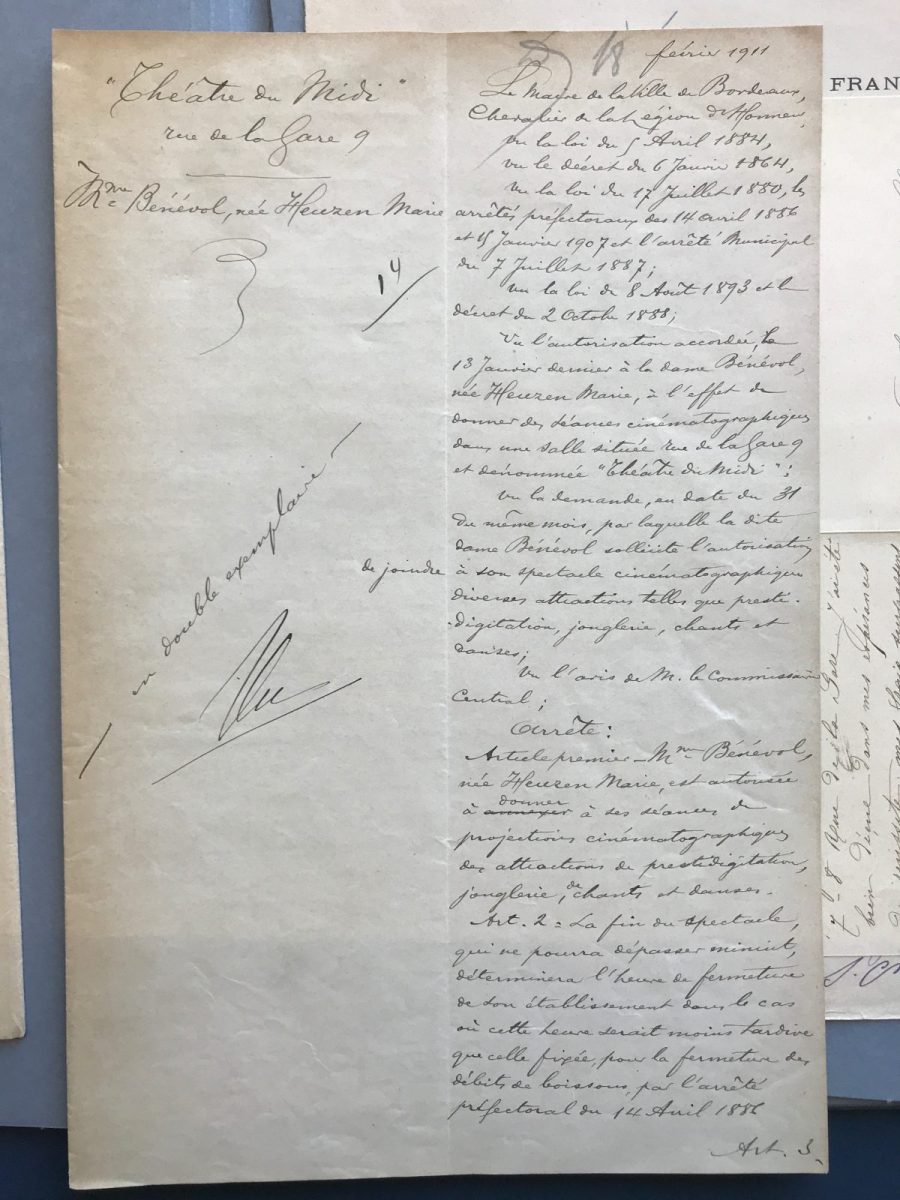 "Théâtre du Midi"
rue de la Gare 9
Mme Bénévol, née Heuzen Marie
14
en double exemplaire
18 février 1911
Le Maire de la Ville de Bordeaux,
Chevalier de la Légion d'Honneur,
vu la loi du 5 Avril 1884,
vu le décret du 6 Janvier 1864,
vu la loi du 17 Juillet 1880, les
arrêtés préfectoraux des 14 avril 1886
et 15 Janvier 1907 et l'arrêté Municipal
du 7 Juillet 1887;
vu la loi du 8 Août 1893 et le
décret du 2 Octobre 1888;
Vu l'autorisation accordée, le
13 Janvier dernier à la dame Bénévol,
née Heuzen Marie, à l'effet de
donner des séances cinématographiques
dans une salle située rue de la Gare 9
et dénommée "Théâtre du Midi";
vu la demande, en date du 31
du même mois, par laquelle la dite
dame Bénévol sollicite l'autorisation
de joindre à son spectacle cinématographique
diverses attractions telles que presti-
digitation, jonglerie, chants et
danses;
Vu l'avis de M. le Commissaire
Central;
Arrête:
Article premier - Mme Bénévol,
née Heuzen Marie, est autorisée
à annexer donner à ses séances de
projections cinématographiques
des attractions de prestidigitation,
jonglerie, de chants et danses.
Art. 2 = La fin du spectacle,
qui ne pourra dépasser minuit,
déterminera l'heure de fermeture
de son établissement dans le cas
où cette heure serait moins tardive
que celle fixée, pour la fermeture des
débits de boissons, par l'arrêté
préfectoral du 14 Avril 1886
Art. 3.
FRAN
7 & 8 Rue de la Gare
dans mes
mes